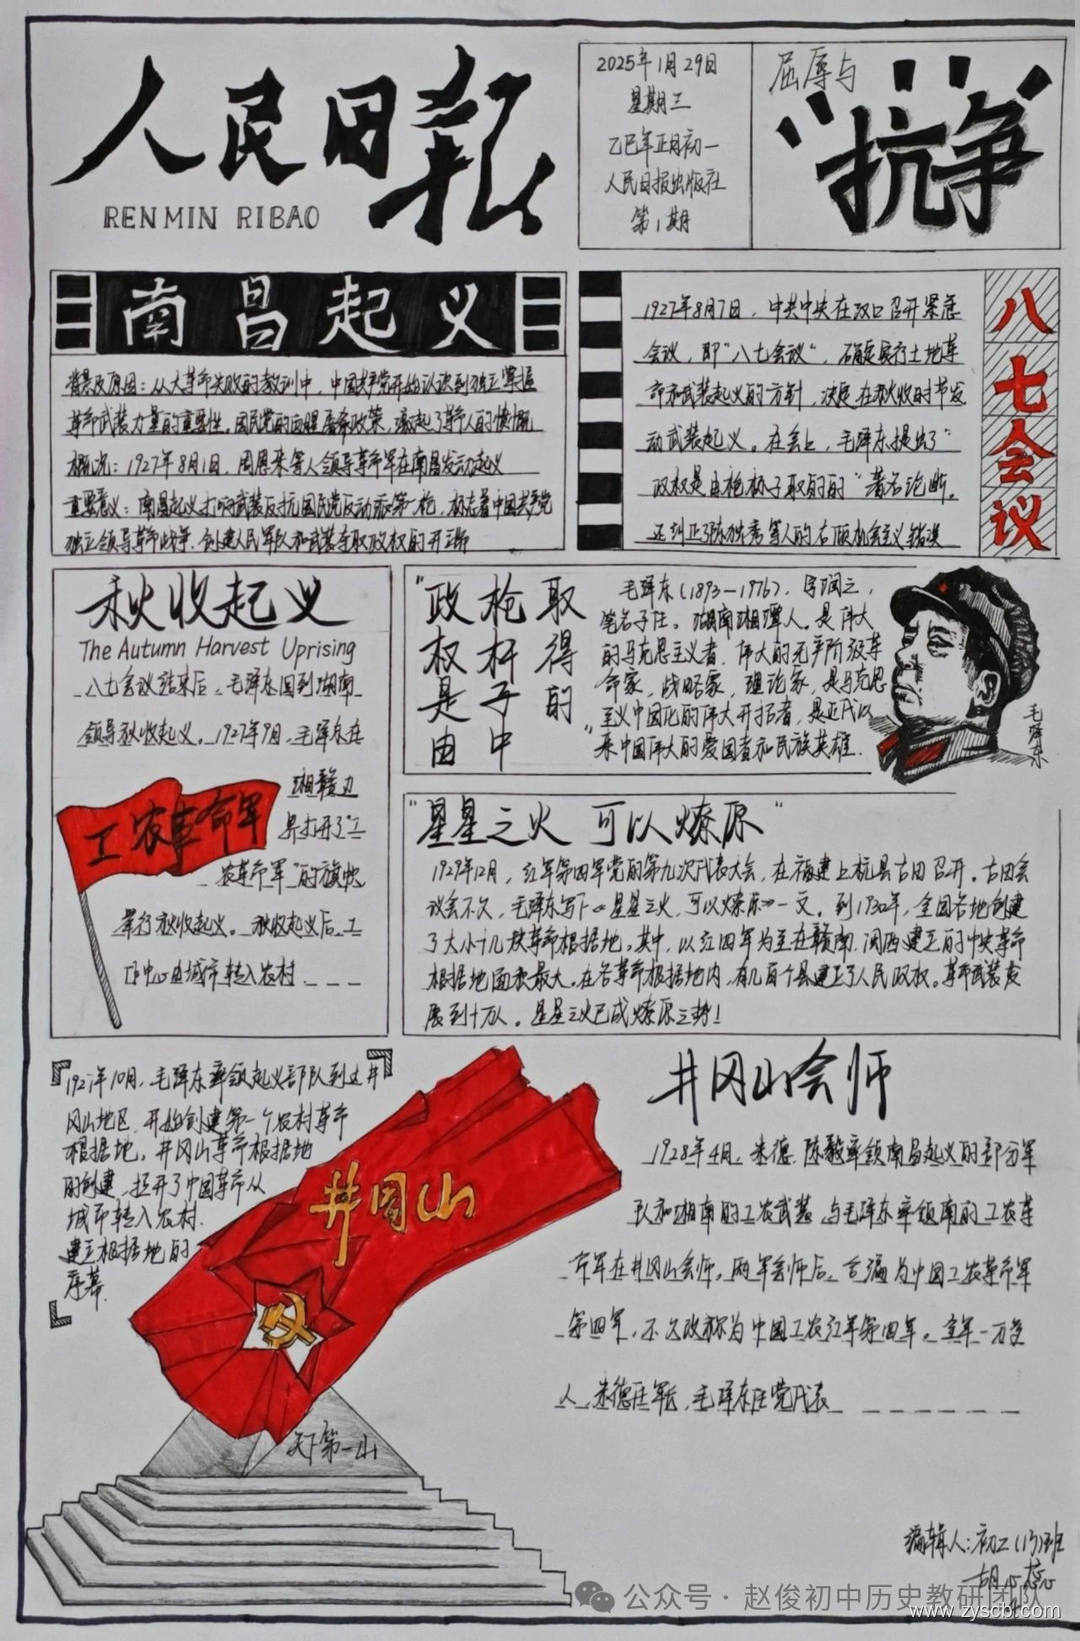 人民日報
RENMIN RIBAO
2025年1月29日
星期三
乙巳年正月初一
人民日报出版社
第1期
屈辱与
"抗争"
南昌起义
背景及原因：从大革命失败的教训中，中国共产党开始认识到独立掌握
革命武装力量的重要性。国民党的血腥屠杀政策，激起了革命人的愤慨
概况：1927年8月1日，周恩来等人领导革命军在南昌发动起义
重要意义：南昌起义打响武装反抗国民党反动派第一枪，标志着中国共产党
独立领导革命战争、创建人民军队和武装夺取政权的开端
1927年8月7日，中共中央在汉口召开紧急
会议，即"八七会议"，确定实行土地革
命和武装起义的方针，决定在秋收时节发
动武装起义。在会上，毛泽东提出了"
政权是由枪杆子取得的"著名论断。
还纠正了陈独秀等人的右倾机会主义错误
八七会议
秋收起义
The Autumn Harvest Uprising
八七会议结束后，毛泽东回到湖南
领导秋收起义。1927年9月，毛泽东在
湘赣边
界打开了"工
农革命军"的旗帜
举行秋收起义。秋收起义后，工
作中心由城市转入农村
工农革命军
"政权是由枪杆子中取得的"
毛泽东(1893—1976)，字润之，
笔名子任。湖南湘潭人。是伟大
的马克思主义者，伟大的无产阶级革
命家，战略家，理论家，是马克思
主义中国化的伟大开拓者，是近代以
来中国伟大的爱国者和民族英雄.
毛泽东
"星星之火 可以燎原"
1929年12月，红军第四军党的第九次代表大会，在福建上杭县古田召开。古田会
议会不久，毛泽东写下《星星之火，可以燎原》一文。到1930年，全国各地创建
了大小十几块革命根据地，其中，以红四军为主在赣南、闽西建立的中央革命
根据地面积最大。在各革命根据地内，有几百个县建立了人民政权。革命武装发
展到十万人。星星之火已成燎原之势！
1927年10月，毛泽东率领起义部队到达井
冈山地区，开始创建第一个农村革命
根据地，井冈山革命根据地
的创建，拉开了中国革命从
城市转入农村.
建立根据地的
序幕.
井冈山
天下第一山
井冈山会师
1928年4月，朱德、陈毅率领南昌起义的部分军
队和湘南的工农武装，与毛泽东率领南的工农革
命军在井冈山会师。两军会师后，合编为中国工农革命军
第四军，不久改称为中国工农红军第四军。全军一万多
人，朱德任军长，毛泽东任党代表
编辑人：初二(13)班
胡心蕊
公众号·赵俊初中历史教研团队
www.zyscbl.com